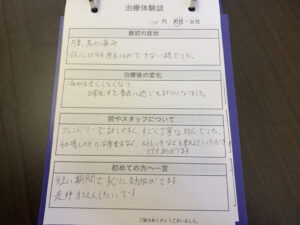 治療体験談
20代 男性・女性
最初の症状
腰、首の痛み
治療後の変化
痛みは全くなくなり
日常生活を普通に過ごせるようになりました。
院やスタッフについて
フレンドリーで話しやすく、すごく丁寧な対応でした。
その場しのぎの治療でなく、ストレッチなども教えていただき
とても助かります
初めての方へ一言
短い期間ですぐに効果がでます。
是非オススメしたいです
ご協力ありがとうございました。